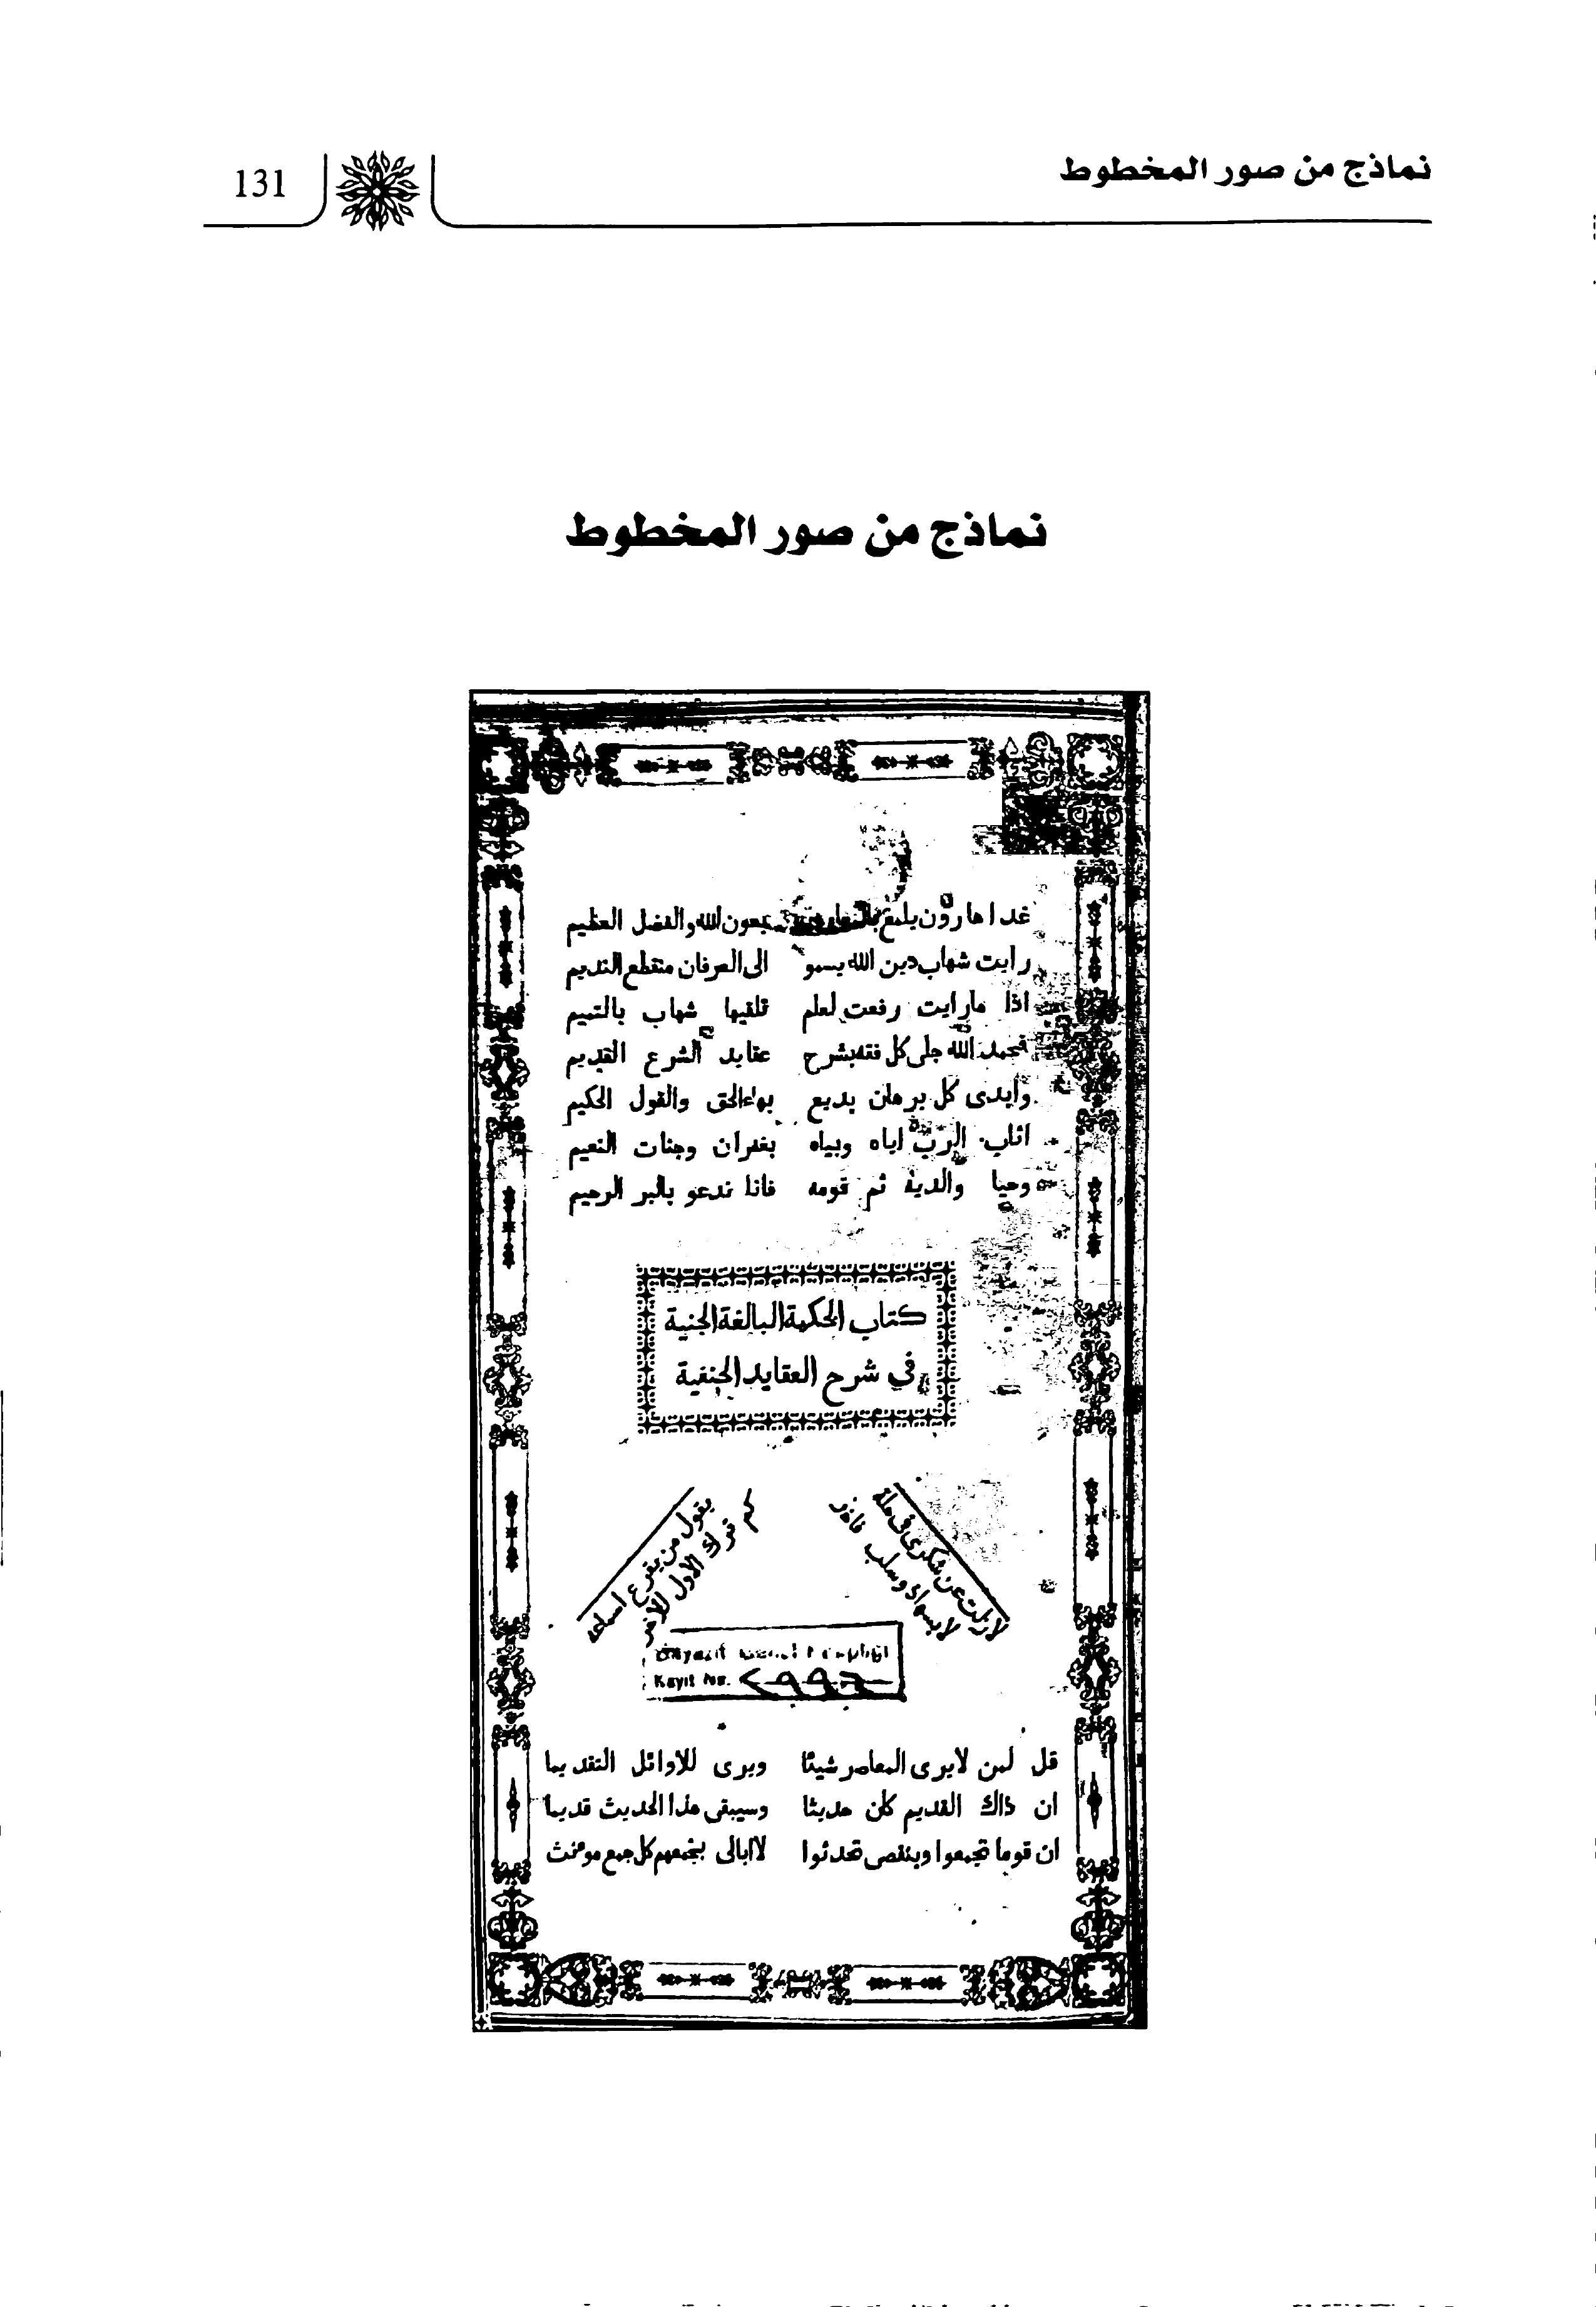 نماذج من صور المخطوط
131
نماذج من صور المخطوط
غدا هارون يلمع بعون الله والفضل العظيم
رايت شهاب دين الله يسمو الى العرفان منقطع النديم
اذا مارايت رفعت لعلم تلقيها شهاب بالتميم
فحمد الله جلى كل فقه بشرح عقايد الشرع القديم
وابدى كل برهان بديع بهاء الحق والقول الحكيم
اثاب الرب اياه وبياه بغفران وجنات النعيم
وحيا والديه ثم قومه فانا ندعو بالبر الرحيم
كتاب الحكمة البالغة الجنية
في شرح العقايد الحنفية
لازلت من شكرى فى حلة
لابسها ذو سلب فاخر
يقول من يقرع اسماعه
كم ترك الاول للآخر
Kayıt No. ٢٩٩٦
قل لمن لايرى المعاصر شيئا ويرى للاوائل التقديما
ان ذاك القديم كان حديثا وسيبقى هذا الحديث قديما
ان قوما تجمعوا وبنقصى تحدثوا لاابالى بجمعهم كل جمع مونث